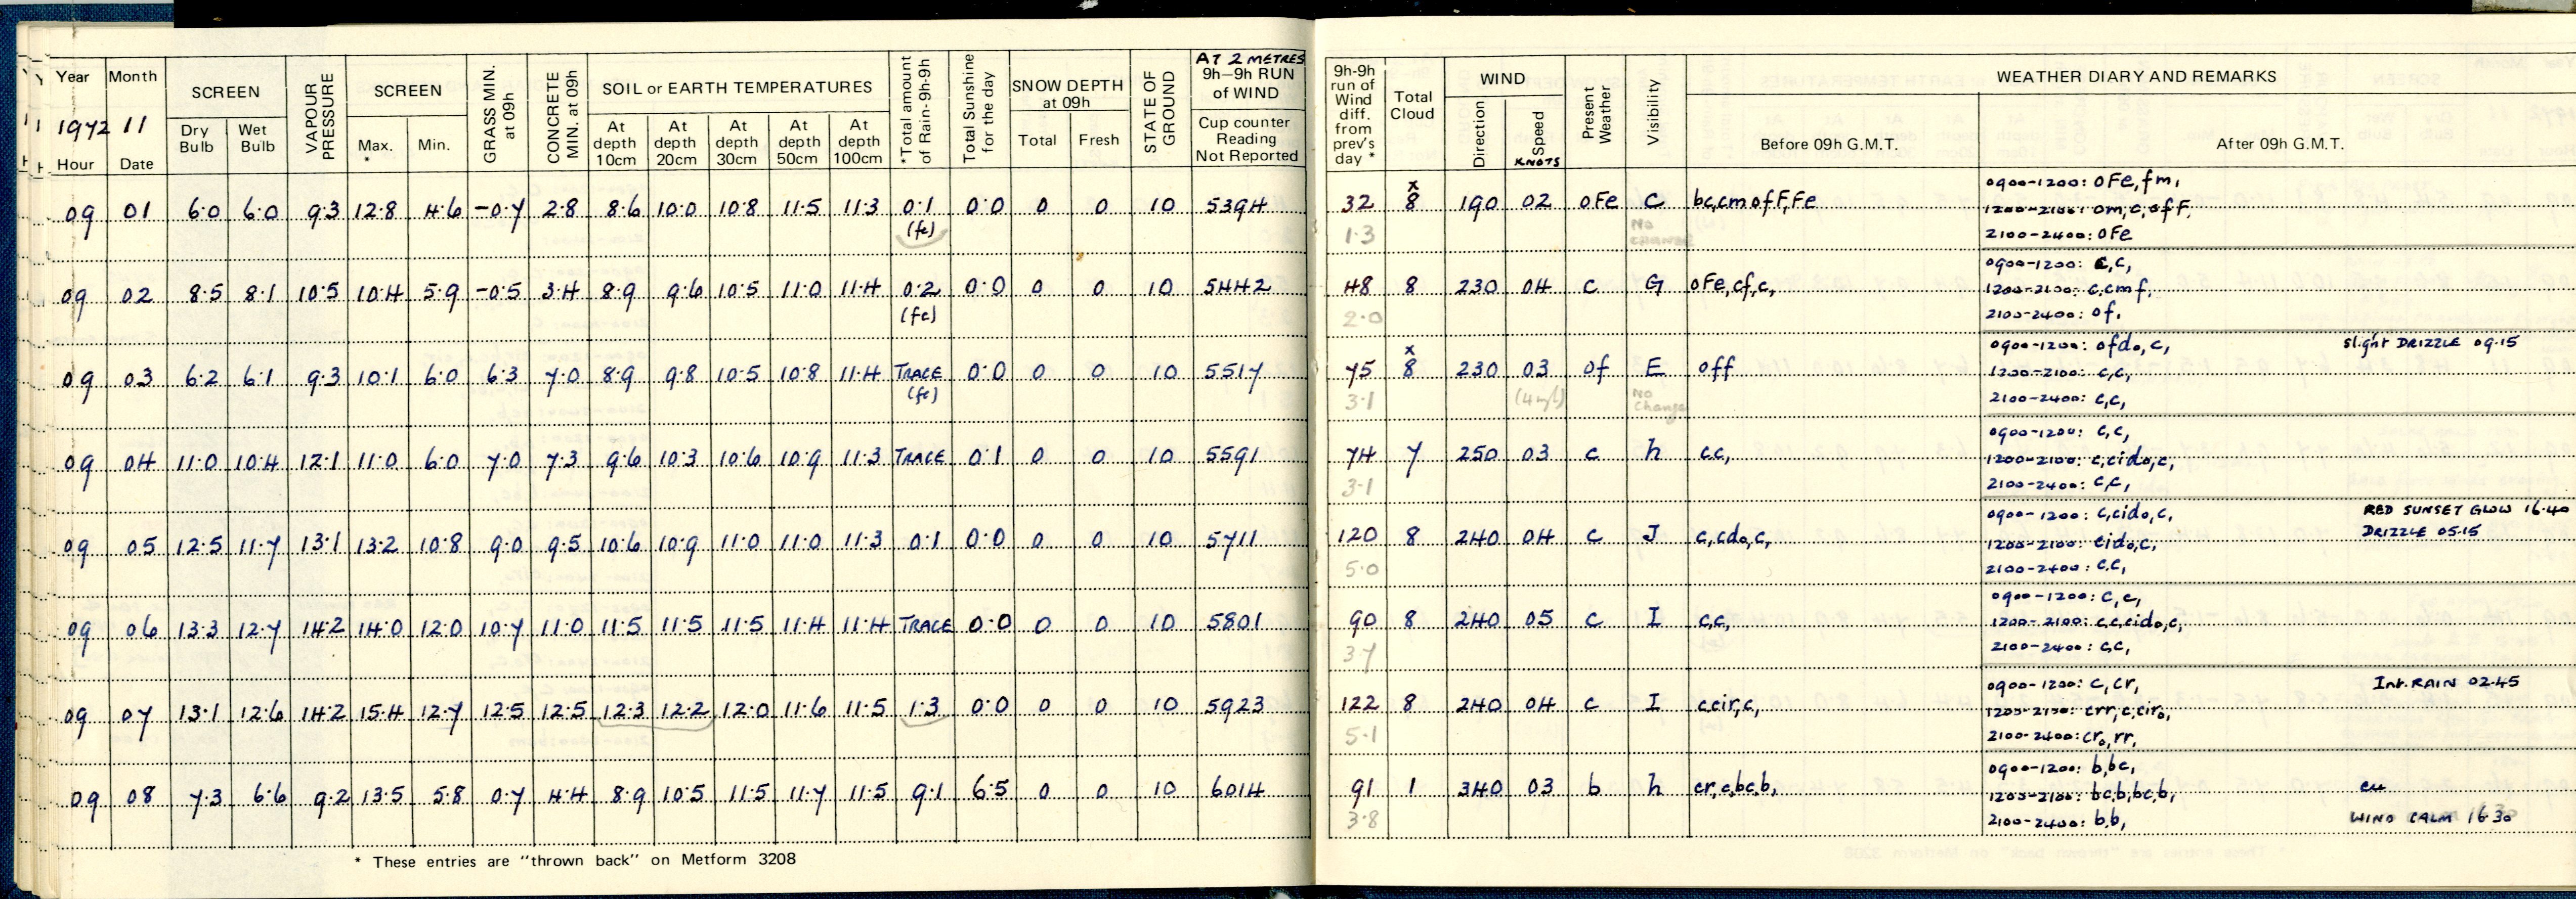 Year Month SCREEN VAPOUR PRESSURE SCREEN GRASS MIN. at 09h CONCRETE MIN. at 09h SOIL or EARTH TEMPERATURES *Total amount of Rain-9h-9h Total Sunshine for the day SNOW DEPTH at 09h STATE OF GROUND AT 2 METRES 9h–9h RUN of WIND
1972 11 Dry Bulb Wet Bulb Max. * Min. At depth 10cm At depth 20cm At depth 30cm At depth 50cm At depth 100cm Total Fresh Cup counter Reading Not Reported
Hour Date
09 01 6.0 6.0 9.3 12.8 4.6 -0.7 2.8 8.6 10.0 10.8 11.5 11.3 0.1 0.0 0 0 10 5394
(fe)
09 02 8.5 8.1 10.5 10.4 5.9 -0.5 3.4 8.9 9.6 10.5 11.0 11.4 0.2 0.0 0 0 10 5442
(fe)
09 03 6.2 6.1 9.3 10.1 6.0 6.3 7.0 8.9 9.8 10.5 10.8 11.4 TRACE 0.0 0 0 10 5517
(fe)
09 04 11.0 10.4 12.1 11.0 6.0 7.0 7.3 9.6 10.3 10.6 10.9 11.3 TRACE 0.1 0 0 10 5591
09 05 12.5 11.7 13.1 13.2 10.8 9.0 9.5 10.6 10.9 11.0 11.0 11.3 0.1 0.0 0 0 10 5711
09 06 13.3 12.7 14.2 14.0 12.0 10.7 11.0 11.5 11.5 11.5 11.4 11.4 TRACE 0.0 0 0 10 5801
09 07 13.1 12.6 14.2 15.4 12.7 12.5 12.5 12.3 12.2 12.0 11.6 11.5 1.3 0.0 0 0 10 5923
09 08 7.3 6.6 9.2 13.5 5.8 0.7 4.4 8.9 10.5 11.5 11.7 11.5 9.1 6.5 0 0 10 6014
* These entries are "thrown back" on Metform 3208
9h-9h run of Wind diff. from prev's day * Total Cloud WIND Present Weather Visibility WEATHER DIARY AND REMARKS
Direction Speed KNOTS Before 09h G.M.T. After 09h G.M.T.
x 0900-1200: oFe,fm,
32 8 190 02 oFe C bc,cmofF,Fe 1200-2100: om,c,ofF,
1.3 No change 2100-2400: oFe
0900-1200: c,c,
48 8 230 04 c G oFe,cf,c, 1200-2100: c,cmf,
2.0 2100-2400: of,
x 0900-1200: ofdo,c, slight DRIZZLE 09.15
75 8 230 03 of E off 1200-2100: c,c,
3.1 No change 2100-2400: c,c,
0900-1200: c,c,
74 7 250 03 c h cc, 1200-2100: c,cido,c,
3.1 2100-2400: c,c,
0900-1200: c,cido,c, RED SUNSET GLOW 16.40
120 8 240 04 c J c,cdo,c, 1200-2100: cido,c, DRIZZLE 05.15
5.0 2100-2400: c.c,
0900-1200: c,c,
90 8 240 05 c I c,c, 1200-2100: c,c,cido,c,
3.7 2100-2400: c,c,
0900-1200: c,cr, Int. RAIN 02.45
122 8 240 04 c I c,cir,c, 1200-2100: crr,c,ciro,
5.1 2100-2400: cro,rr,
0900-1200: b,bc,
91 1 340 03 b h cr,c,bc,b, 1200-2100: bc,b,bc,b,
3.8 2100-2400: b,b, WIND CALM 16.30